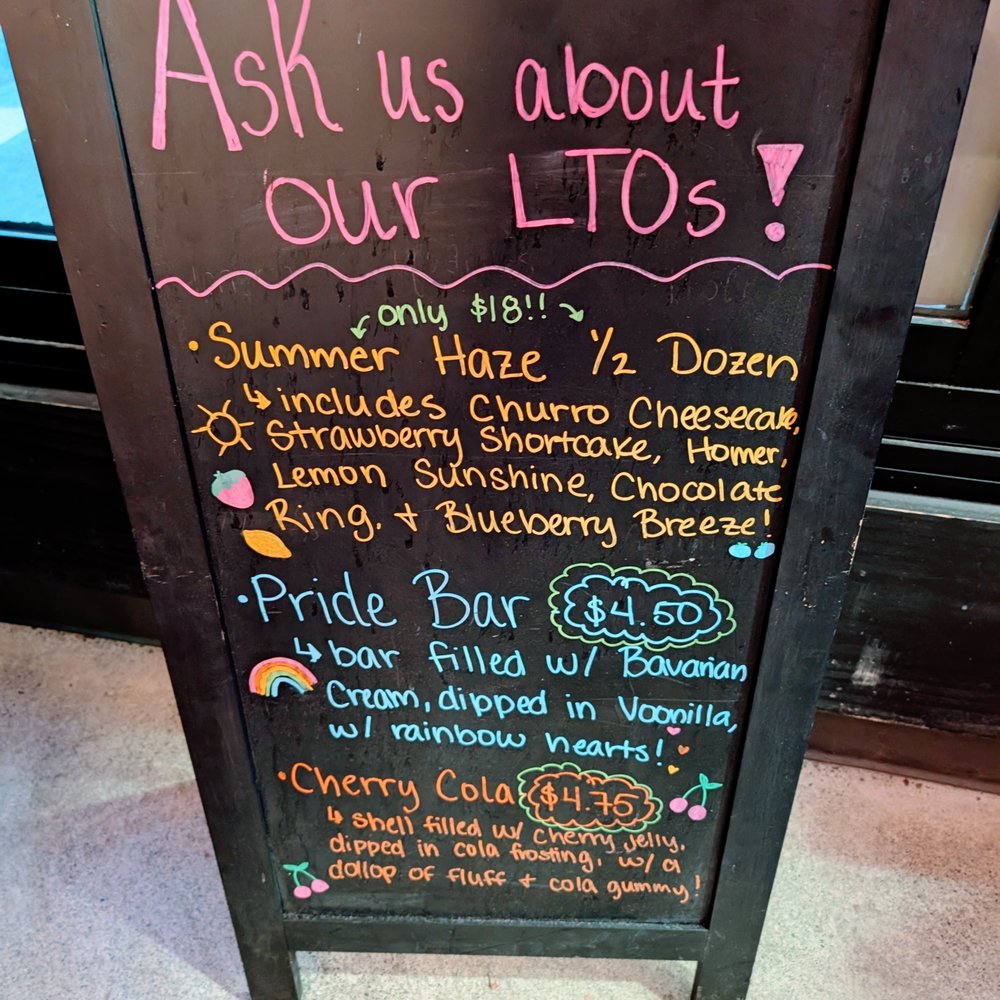 Ask us about
our LTOs!
only $18!!
• Summer Haze 1/2 Dozen
↳ includes Churro Cheesecake,
Strawberry Shortcake, Homer,
Lemon Sunshine, Chocolate
Ring, + Blueberry Breeze!
• Pride Bar $4.50
↳ bar filled w/ Bavarian
Cream, dipped in Voonilla,
w/ rainbow hearts!
• Cherry Cola $4.75
↳ shell filled w/ cherry jelly,
dipped in cola frosting, w/ a
dollop of fluff + cola gummy!